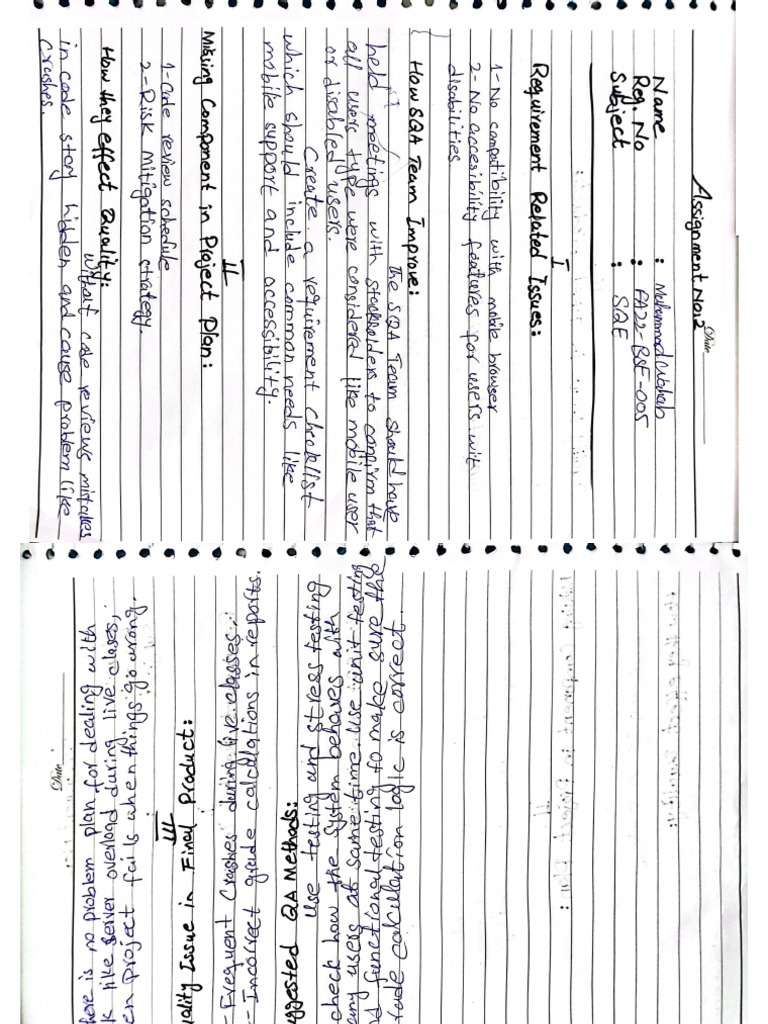 Assignment No:2
Date
Name : Muhammad Wahab
Reg. No : FA22-BSE-005
Subject : SQE
I
Requirement Related Issues:
1- No compatibility with mobile browser
2- No accesibility features for users wit
disabilities
How SQA Team Improve:
The SQA Team should have
held meetings with stockholders to confirm that
all users type were considered like mobile user
or disabled users.
Create a requirement checklist
which should include common needs like
mobile support and accessibility.
II
Missing Component in Project Plan:
1- Code review schedule
2- Risk Mitigation strategy.
How they effect Quality:
Without code reviews mistakes
in code stay hidden and cause problem like
crashes.
Date
here is no problem plan for dealing with
k like server overload during live clases,
en project fails when things go wrong.
III
ality Issue in Final Product:
- Frequent Crashes during live classes.
-- Incorrect grade calculations in reports.
ggested QA Methods:
Use testing and stress testing
check how the system behaves with
any users at same time. Use unit testing
d functional testing to make sure the
rade calculation logic is correct.